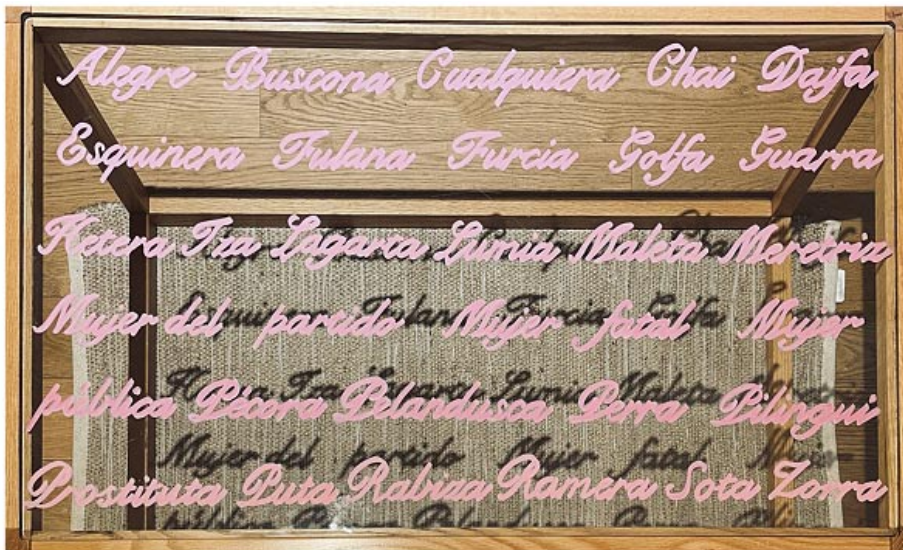 Alegre Buscona Cualquiera Chai Daifa
Esquinera Fulana Furcia Golfa Guarra
Hetera Iza Lagarta Lumia Maleta Meretriz
Mujer del partido Mujer fatal Mujer
pública Pécora Pelandusca Perra Pilingui
Prostituta Puta Rabiza Ramera Sota Zorra